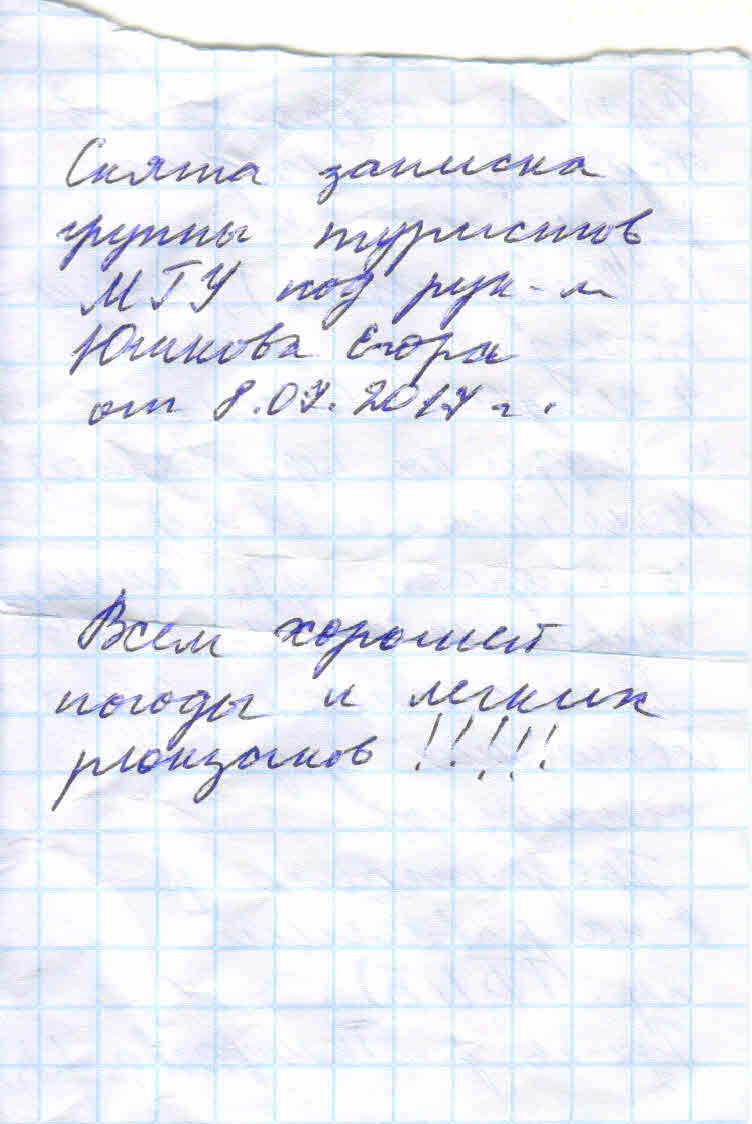 Снята записка
группы туристов
МГУ под рук-м
Юшкова Егора
от 8.07.2017 г.
Всем хорошей
погоды и легких
рюкзаков !!!!!